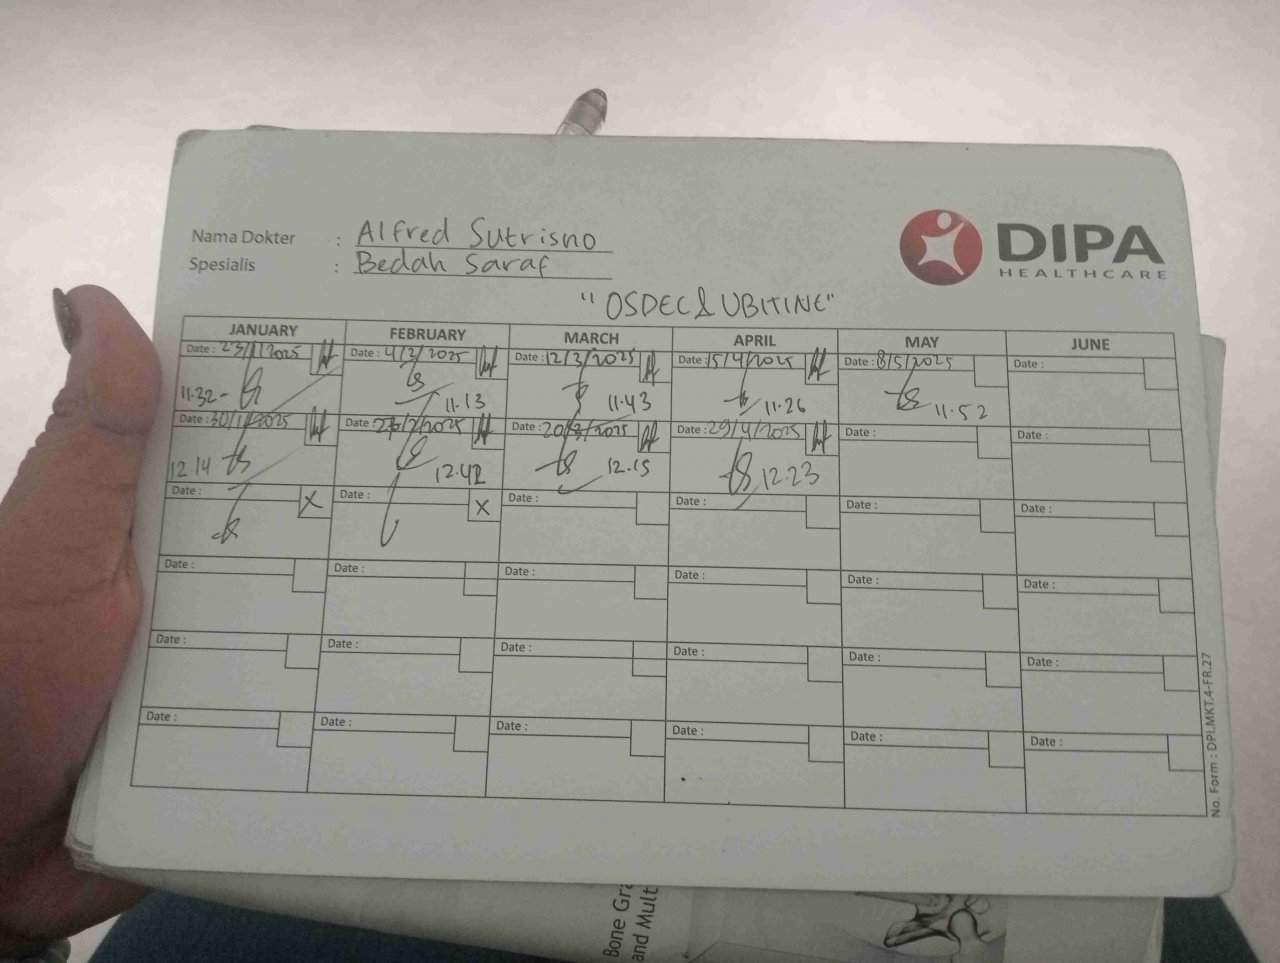 Nama Dokter : Alfred Sutrisno
Spesialis : Bedah Saraf
DIPA
HEALTHCARE
"OSDEC & UBITINE"
JANUARY FEBRUARY MARCH APRIL MAY JUNE
Date : 23/1/2025 Date : 4/2/2025 Date : 12/3/2025 Date : 15/4/2025 Date : 8/5/2025 Date :
11.32 11.13 11.43 11.26 11.52
Date : 30/1/2025 Date : 27/2/2025 Date : 20/3/2025 Date : 29/4/2025 Date : Date :
12.14 12.42 12.15 12.23
Date : X Date : X Date : Date : Date : Date :
Date : Date : Date : Date : Date : Date :
Date : Date : Date : Date : Date : Date :
Date : Date : Date : Date : Date : Date :
No. Form : DPI.MKT.4-FR.27
Bone Gra
and Mult